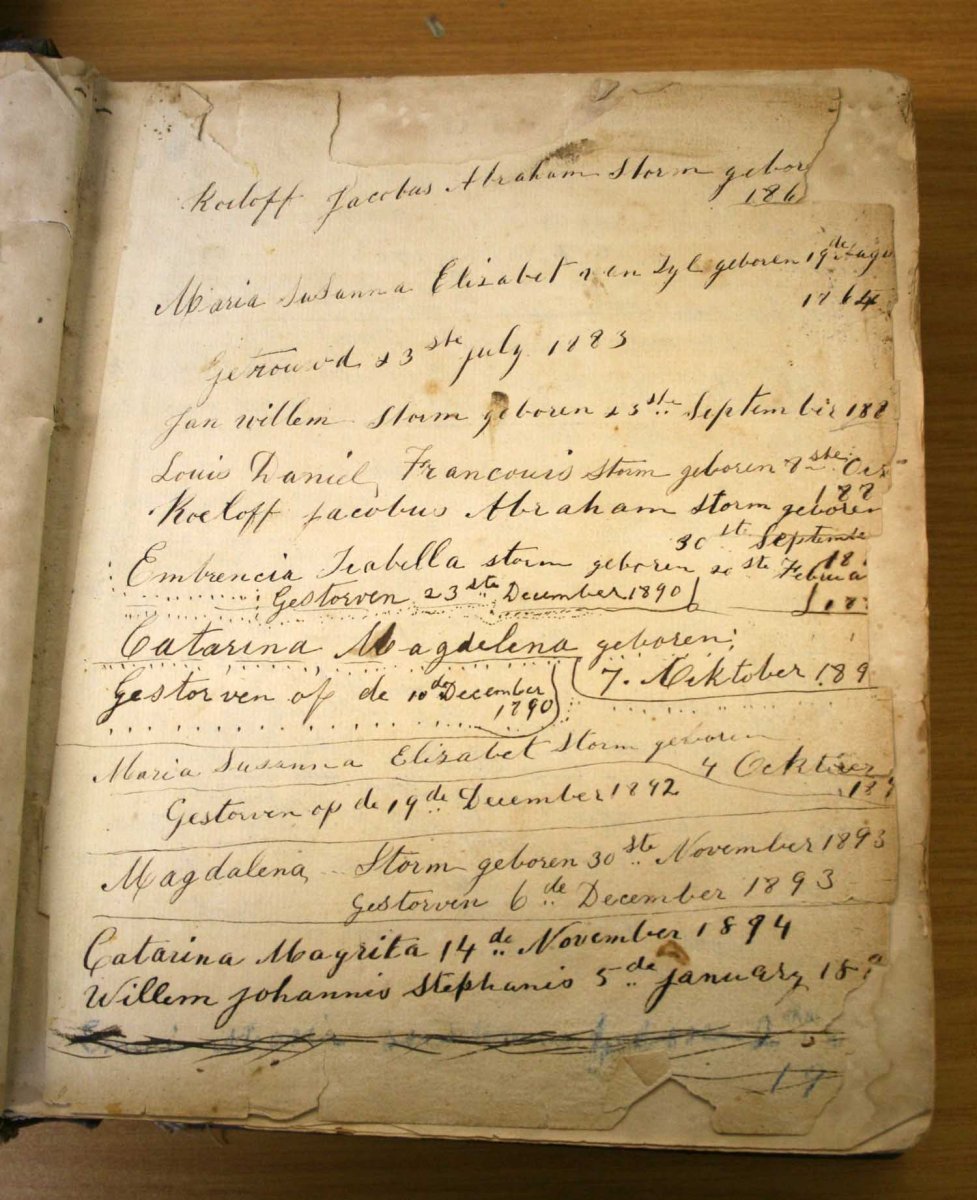 Roeloff Jacobus Abraham Storm gebor
186
Maria Susanna Elizabet van Zyl geboren 19de Augu
1864
Getrouwd 23ste July 1883
Jan Willem Storm geboren 23ste September 188
Louis Daniel Francouis Storm geboren 8ste Oct
188
Roeloff Jacobus Abraham Storm geboren
30ste Septembe
18
Embrencia Isabella Storm geboren 20ste Februa
Gestorven 23ste December 1890
18
Catarina Magdelena geboren
7. Ocktober 189
Gestorven op de 10de December
1890
Maria Susanna Elizabet Storm geboren
4 Ocktober
189
Gestorven op de 19de December 1892
Magdalena Storm geboren 30ste November 1893
Gestorven 6de December 1893
Catarina Magrita 14de November 1894
Willem Johannis Stephanis 5de January 18
19